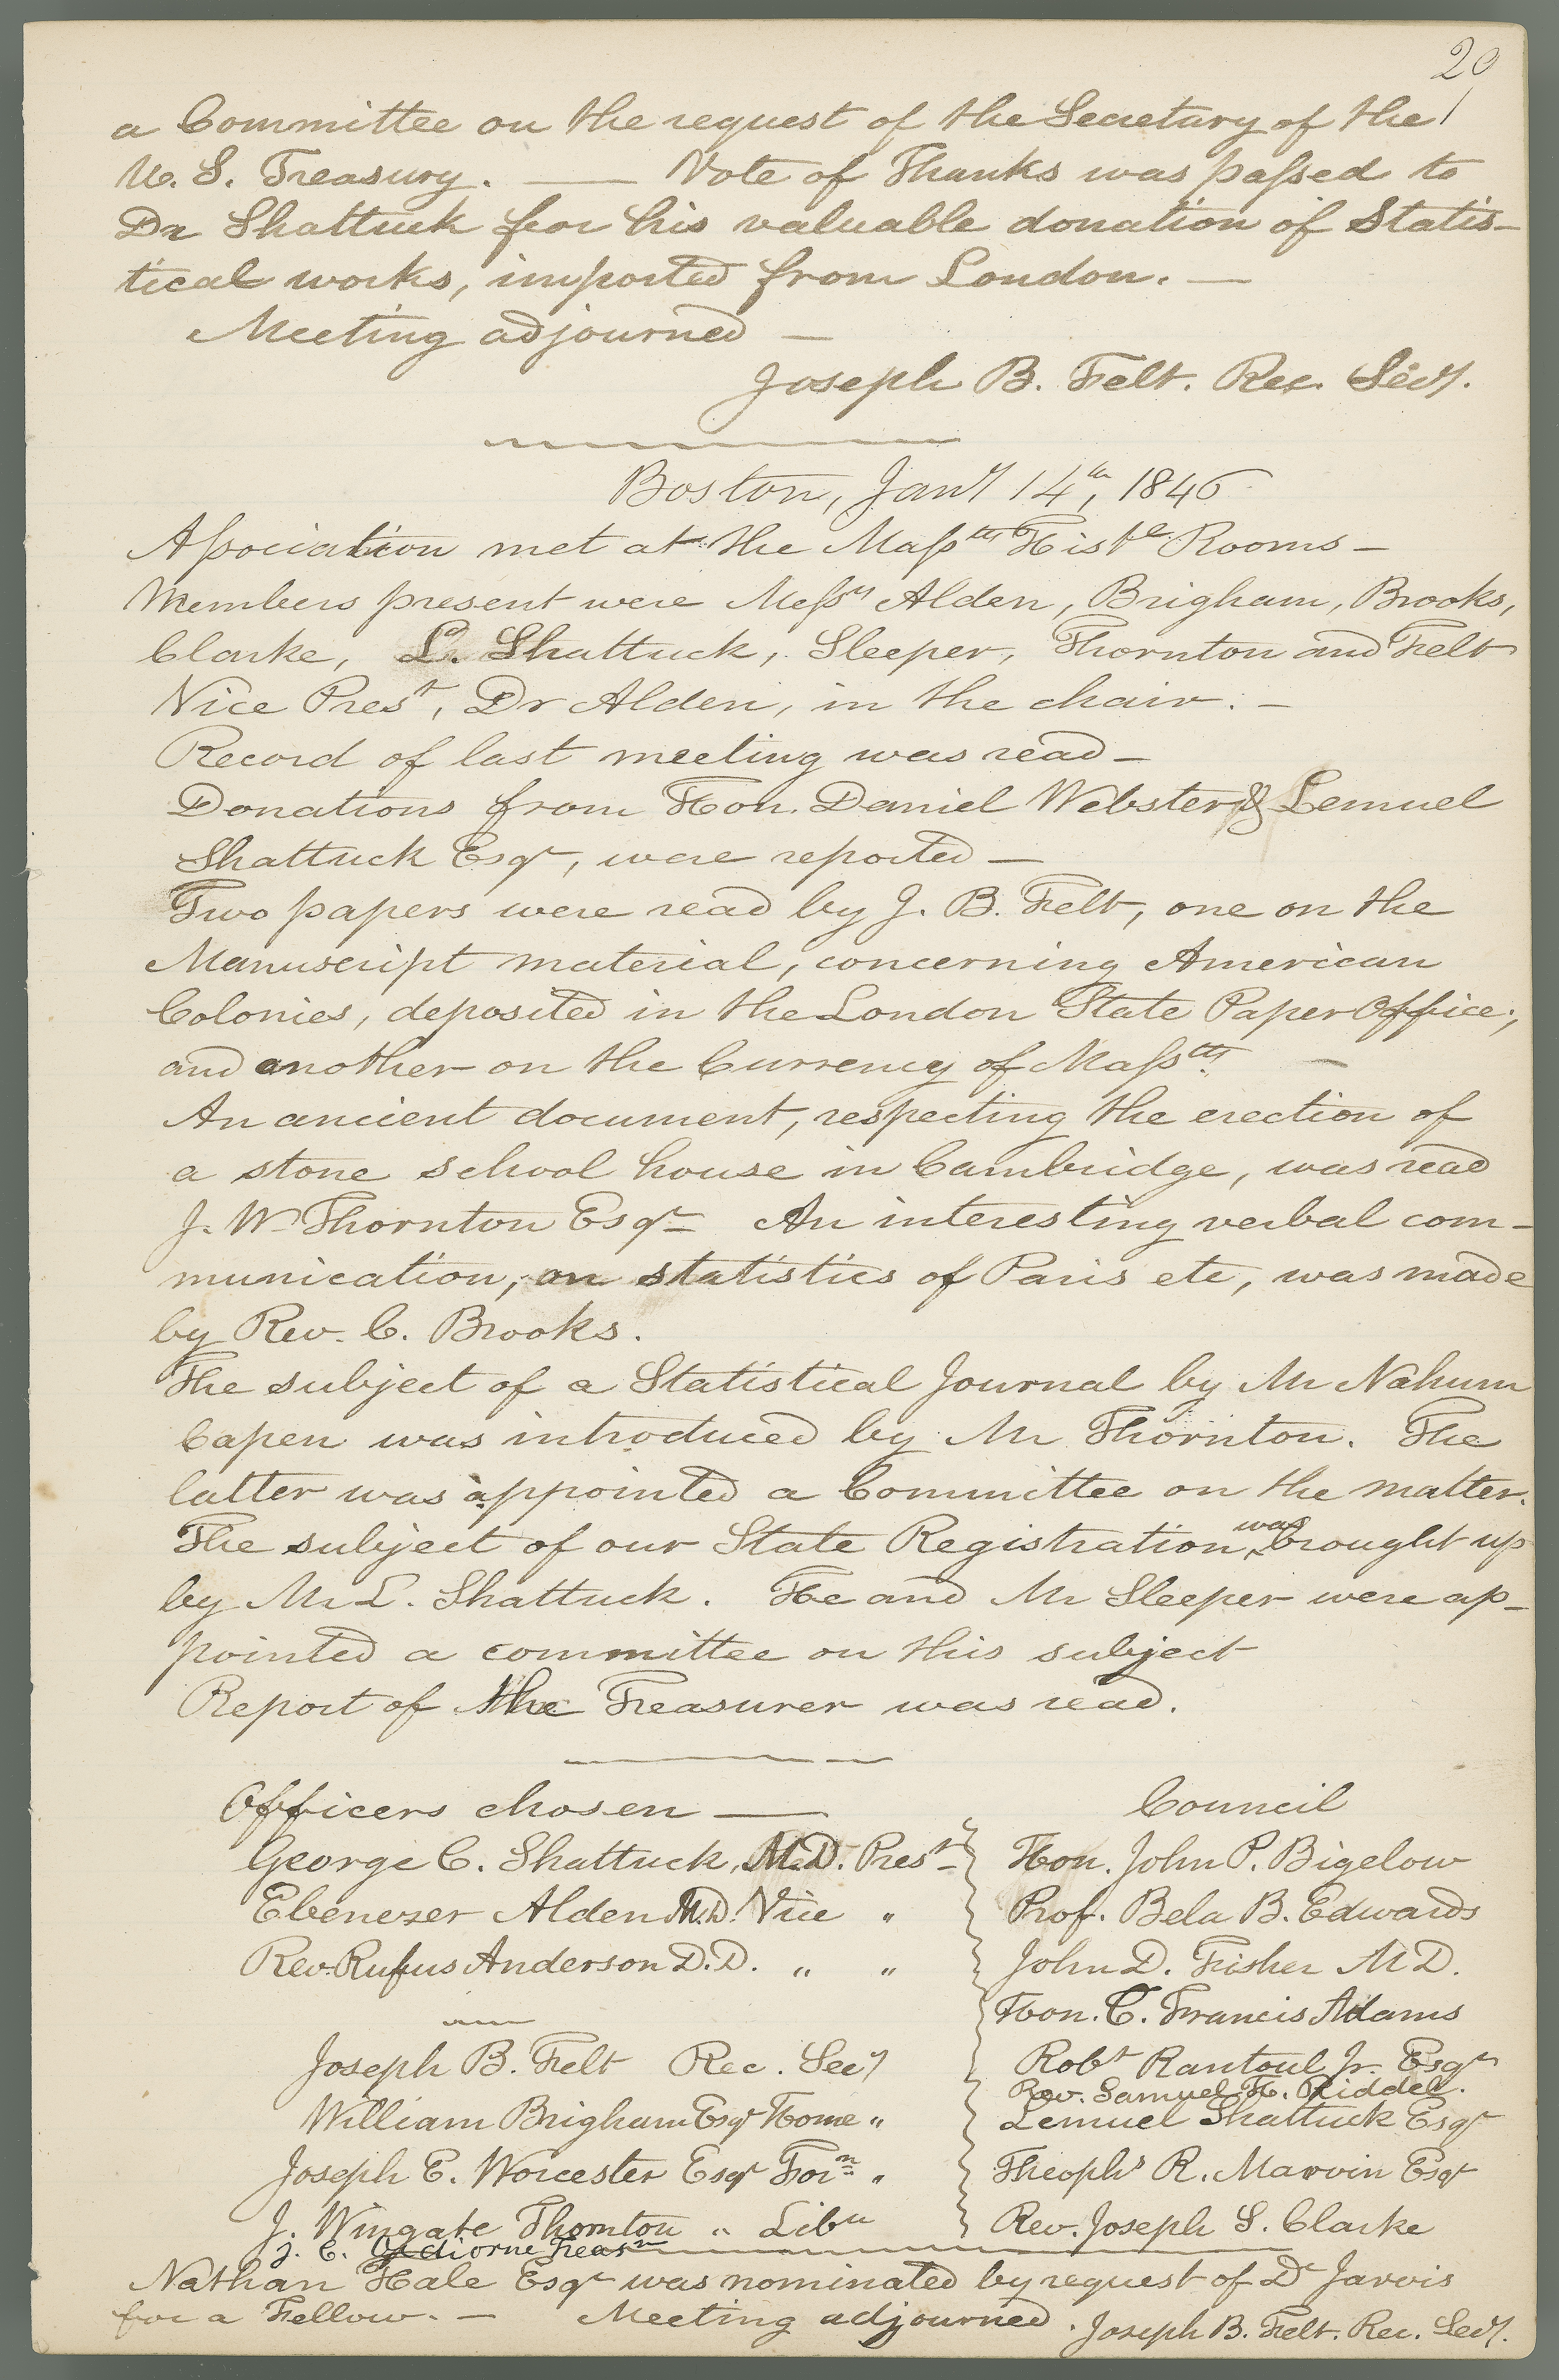 20
a Committee on the request of the Secretary of the
U. S. Treasury. — Vote of Thanks was passed to
Dr Shattuck for his valuable donation of Statis-
tical works, imported from London. —
Meeting adjourned —
Joseph B. Felt. Rec. Secy.
Boston, Jany 14th, 1846
Association met at the Massts Histl Rooms —
Members present were Messrs Alden, Brigham, Brooks,
Clarke, L. Shattuck, Sleeper, Thornton and Felt
Vice Prest, Dr Alden, in the chair. —
Record of last meeting was read —
Donations from Hon. Daniel Webster & Lemuel
Shattuck Esqr, were reported —
Two papers were read by J. B. Felt, one on the
Manuscript material, concerning American
Colonies, deposited in the London State Paper Office;
and another on the Currency of Massts. —
An ancient document, respecting the erection of
a stone school house in Cambridge, was read
J. W. Thornton Esqr — An interesting verbal com-
munication, on statistics of Paris etc, was made
by Rev. C. Brooks.
The subject of a Statistical Journal by Mr Nahum
Capen was introduced by Mr Thornton. The
latter was appointed a Committee on the matter.
The subject of our State Registration was brought up
by Mr L. Shattuck. He and Mr Sleeper were ap-
pointed a committee on this subject
Report of the Treasurer was read.
Officers chosen —
George C. Shattuck, M.D. Prest
Ebenezer Alden M.D. Vice "
Rev. Rufus Anderson D.D. " "
Joseph B. Felt Rec. Secy
William Brigham Esqr Home "
Joseph E. Worcester Esqr Forn "
J. Wingate Thornton " Libn
J. C. Odiorne Treasr
Council
Hon. John P. Bigelow
Prof. Bela B. Edwards
John D. Fisher M D.
Hon. C. Francis Adams
Robt Rantoul Jr. Esqr
Rev. Samuel H. Riddel.
Lemuel Shattuck Esqr
Theophs R. Marvin Esqr
Rev. Joseph S. Clarke
Nathan Hale Esqr was nominated by request of Dr Jarvis
for a Fellow. — Meeting adjourned. Joseph B. Felt. Rec. Secy.